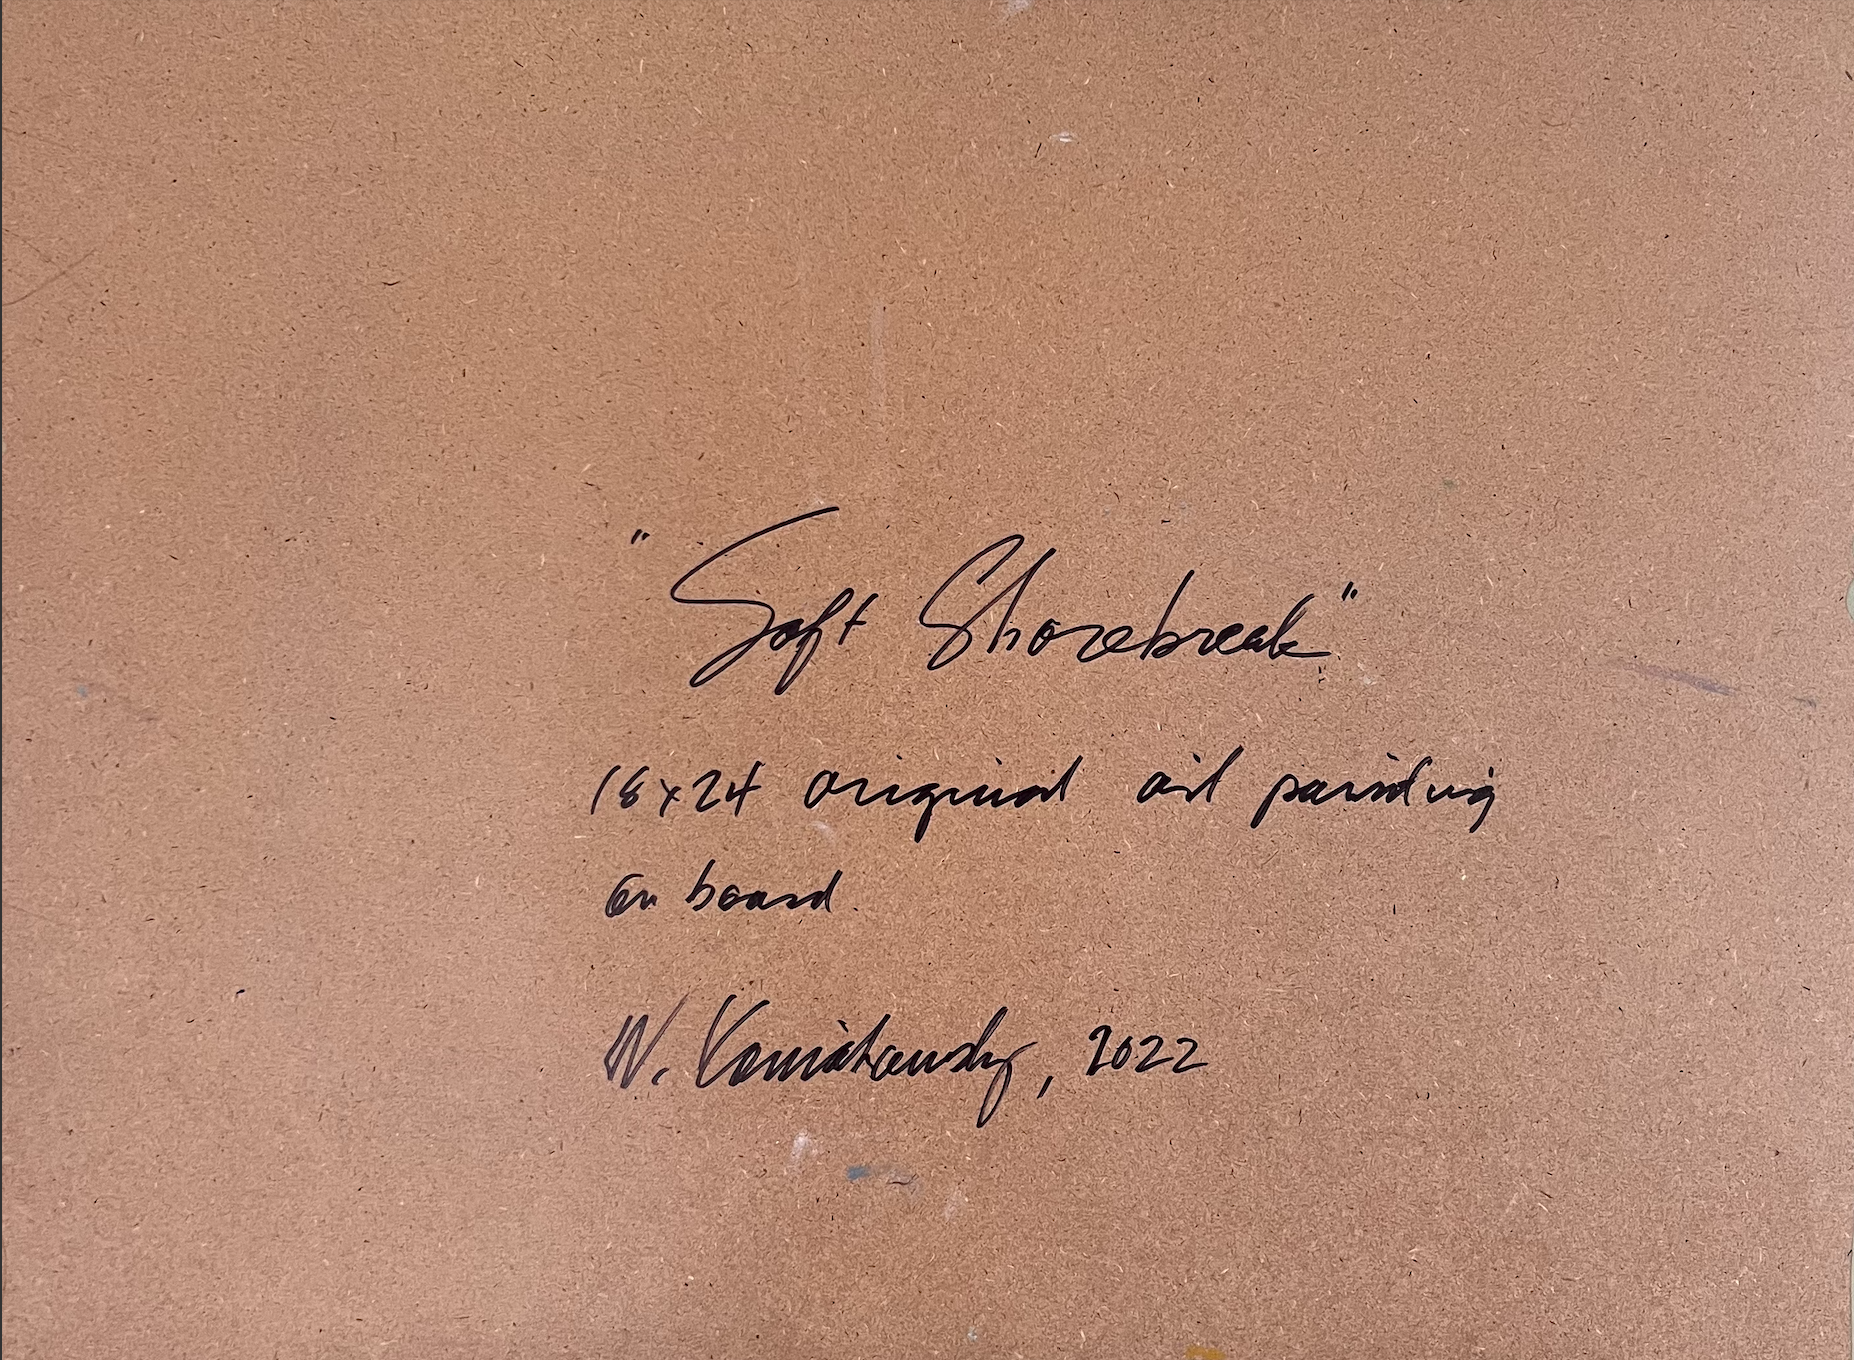 "Soft Shorebreak"
18x24 original oil painting
on board.
W. Komiakowsky, 2022